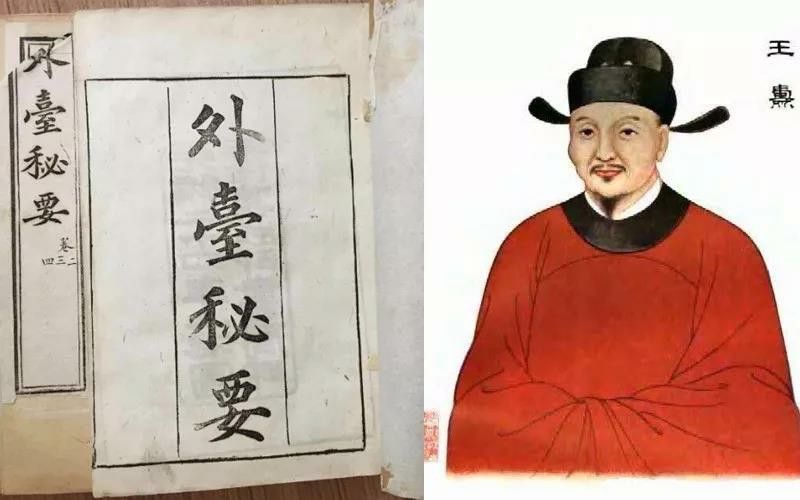 外臺秘要
卷二三四
外臺秘要
王燾